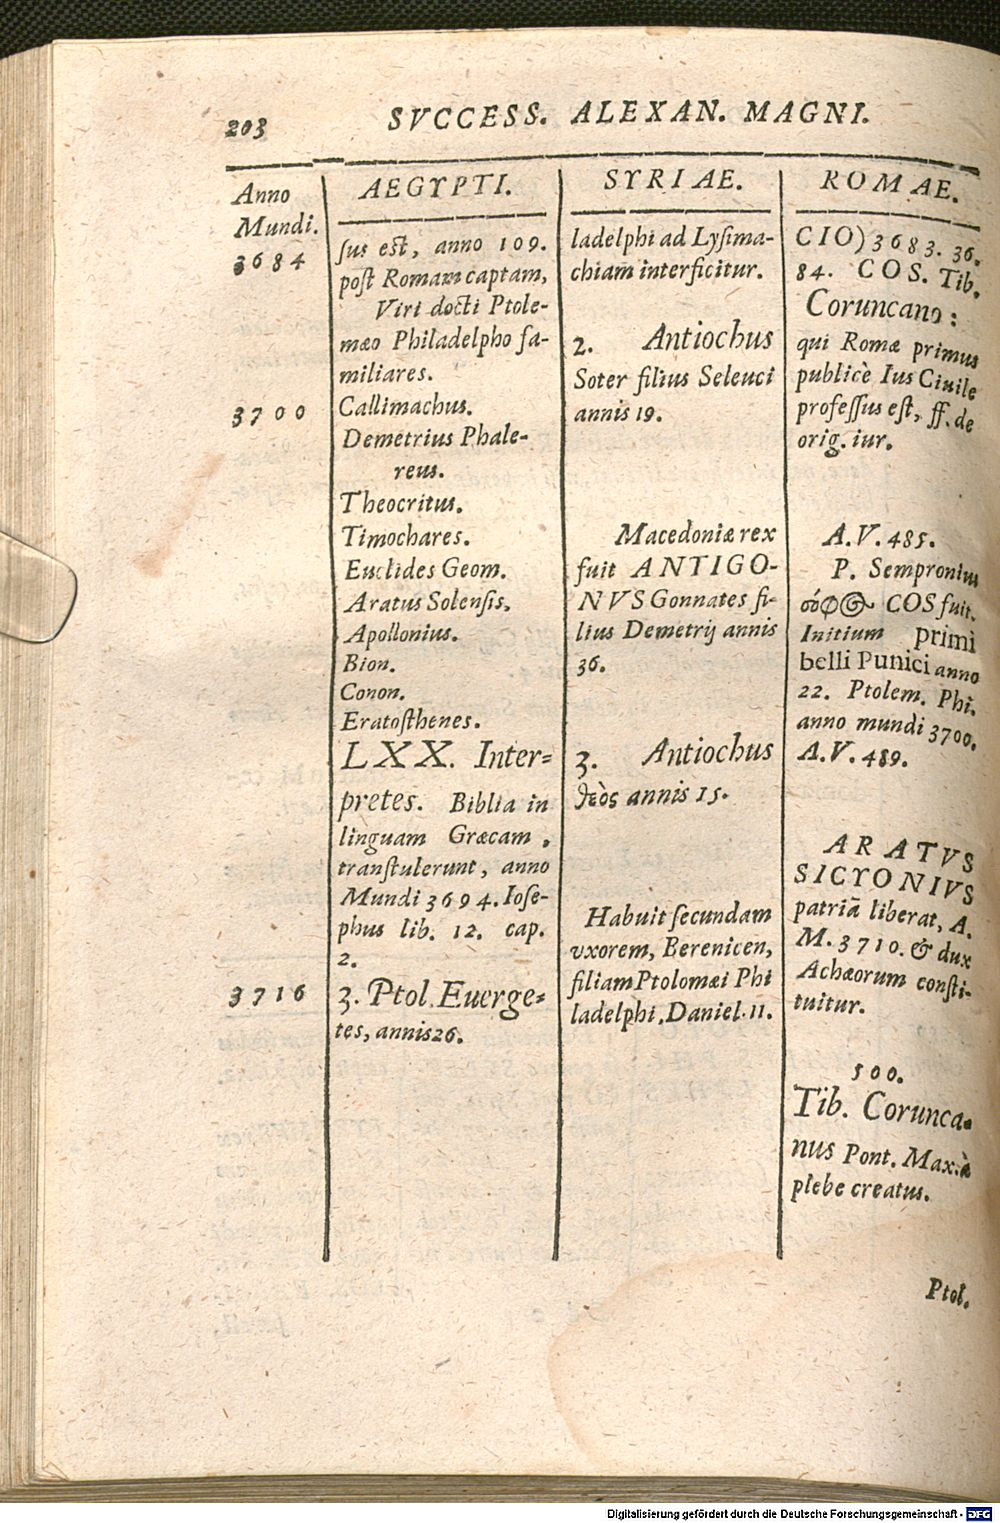 203
SVCCESS. ALEXAN. MAGNI.
Anno
Mundi.
3684
3700
3716
AEGYPTI.
ſus eſt, anno 109.
poſt Romam captam,
Viri docti Ptole-
mæo Philadelpho fa-
miliares.
Callimachus.
Demetrius Phale-
reus.
Theocritus.
Timochares.
Euclides Geom.
Aratus Solenſis,
Apollonius.
Bion.
Conon.
Eratoſthenes.
LXX. Inter=
pretes. Biblia in
linguam Græcam,
tranſtulerunt, anno
Mundi 3694. Ioſe-
phus lib. 12. cap.
2.
3. Ptol. Euerge=
tes, annis 26.
SYRIAE.
ladelphi ad Lyſima-
chiam interficitur.
2. Antiochus
Soter filius Seleuci
annis 19.
Macedoniæ rex
fuit ANTIGO-
NVS Gonnates fi-
lius Demetrij annis
36.
3. Antiochus
θεὸς annis 15.
Habuit ſecundam
vxorem, Berenicen,
filiam Ptolomæi Phi
ladelphi, Daniel. 11.
ROMAE.
CIO) 3683. 36.
84. COS. Tib.
Coruncano:
qui Romæ primus
publicè Ius Ciuile
profeſſus eſt, ff. de
orig. iur.
A.V. 485.
P. Sempronius
σόφος COS fuit.
Initium primi
belli Punici anno
22. Ptolem. Phi.
anno mundi 3700.
A.V. 489.
ARATVS
SICYONIVS
patriā liberat, A.
M. 3710. & dux
Achæorum conſti-
tuitur.
500.
Tib. Corunca-
nus Pont. Max. à
plebe creatus.
Ptol.
Digitalisierung gefördert durch die Deutsche Forschungsgemeinschaft - DFG